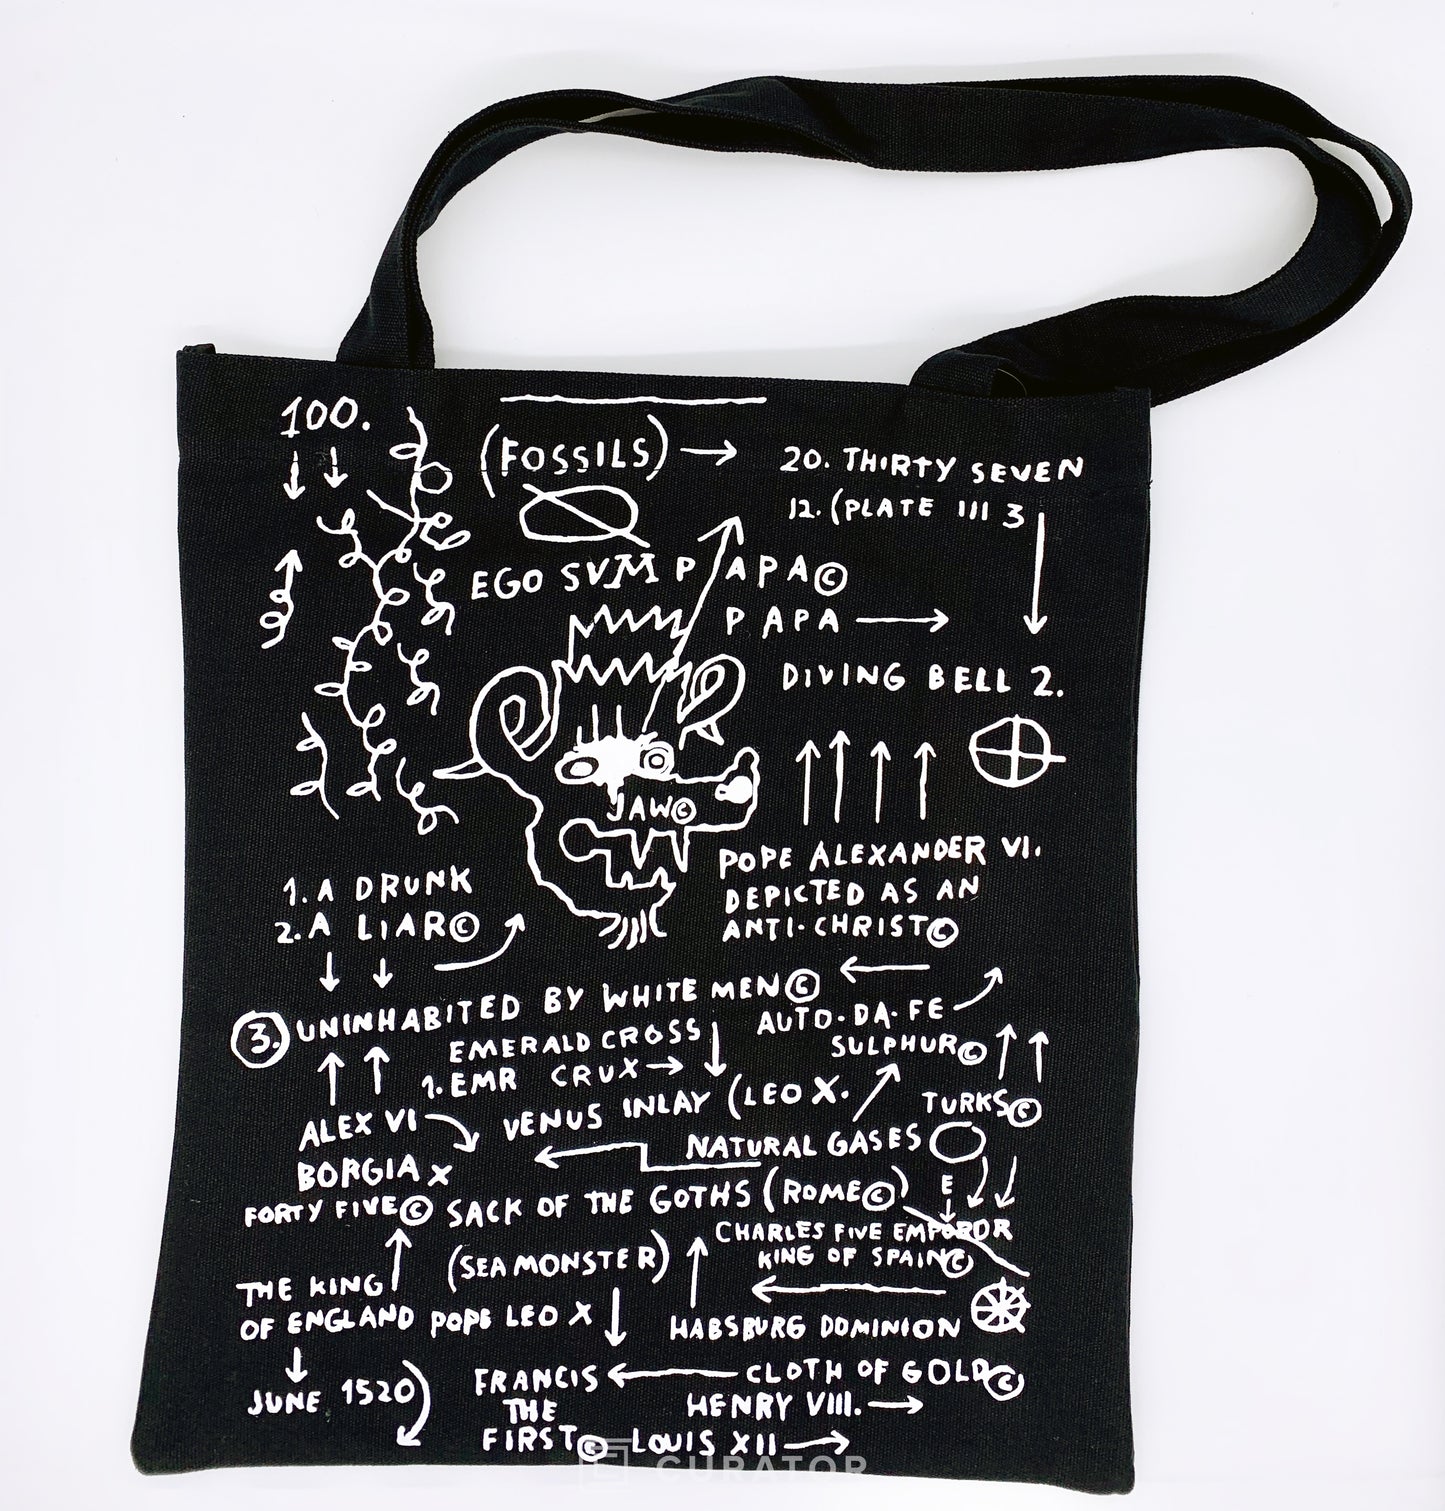 100.
(FOSSILS)
20. THIRTY SEVEN
12. (PLATE III 3
EGO SVM PAPA©
PAPA
DIVING BELL 2.
JAW©
POPE ALEXANDER VI.
DEPICTED AS AN
ANTI-CHRIST©
1. A DRUNK
2. A LIAR©
3. UNINHABITED BY WHITE MEN©
AUTO-DA-FE
EMERALD CROSS
SULPHUR©
1. EMR CRUX
VENUS INLAY (LEO X.
TURKS©
ALEX VI
NATURAL GASES
BORGIA X
FORTY FIVE© SACK OF THE GOTHS (ROME©)
E
CHARLES FIVE EMPOROR
KING OF SPAIN©
(SEA MONSTER)
THE KING
OF ENGLAND POPE LEO X
HABSBURG DOMINION
JUNE 1520
FRANCIS
CLOTH OF GOLD©
THE
HENRY VIII.
FIRST© LOUIS XII
CURATOR